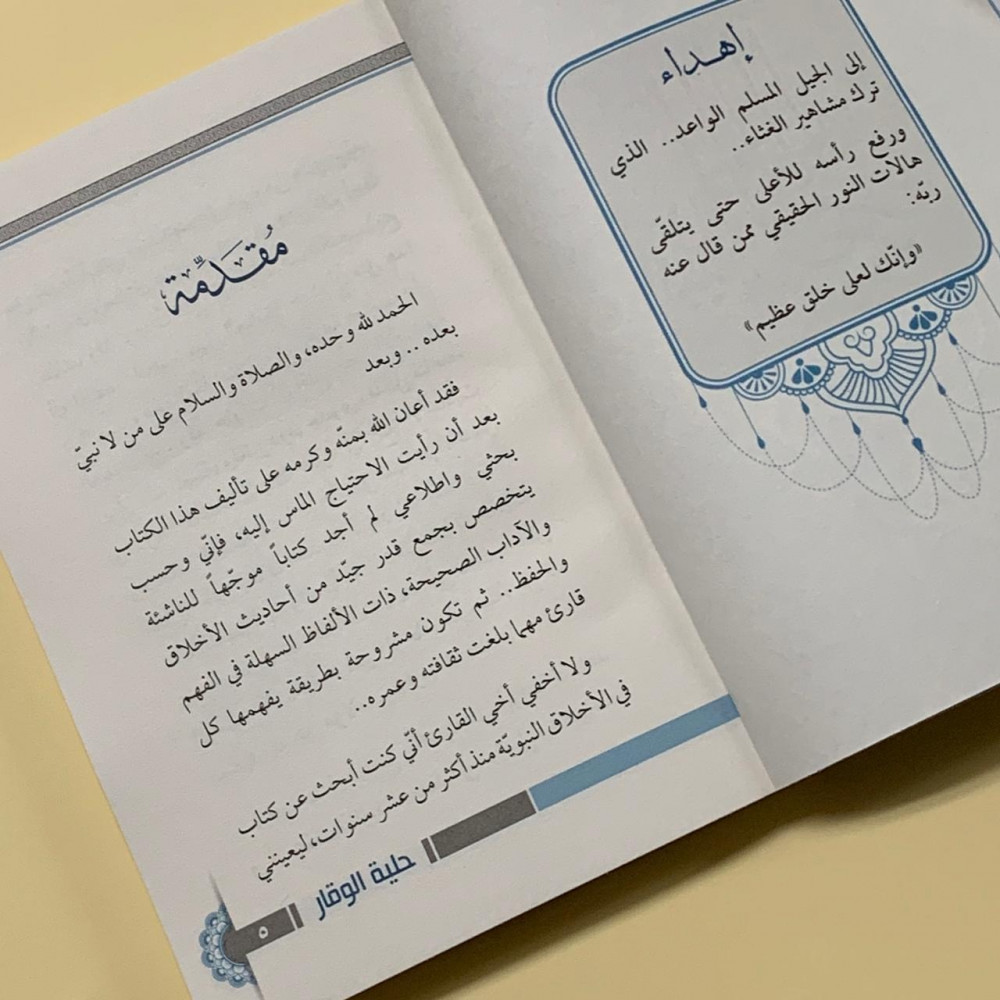 إهداء
إلى الجيل المسلم الواعد.. الذي
ترك مشاهير الغثاء..
ورفع رأسه للأعلى حتى يتلقّى
هالات النور الحقيقي ممن قال عنه
ربّه:
«وإنّك لعلى خلق عظيم»
مُقدِّمة
الحمد لله وحده، والصلاة والسلام على من لا نبيّ
بعده.. وبعد
فقد أعان الله بمنّه وكرمه على تأليف هذا الكتاب
بعد أن رأيت الاحتياج الماس إليه، فإنّي وحسب
بحثي واطلاعي لم أجد كتاباً موجّهاً للناشئة
يتخصص بجمع قدر جيّد من أحاديث الأخلاق
والآداب الصحيحة، ذات الألفاظ السهلة في الفهم
والحفظ.. ثم تكون مشروحة بطريقة يفهمها كل
قارئ مهما بلغت ثقافته وعمره..
ولا أخفي أخي القارئ أنّي كنت أبحث عن كتاب
في الأخلاق النبويّة منذ أكثر من عشر سنوات، ليعينني
حلية الوقار
٥